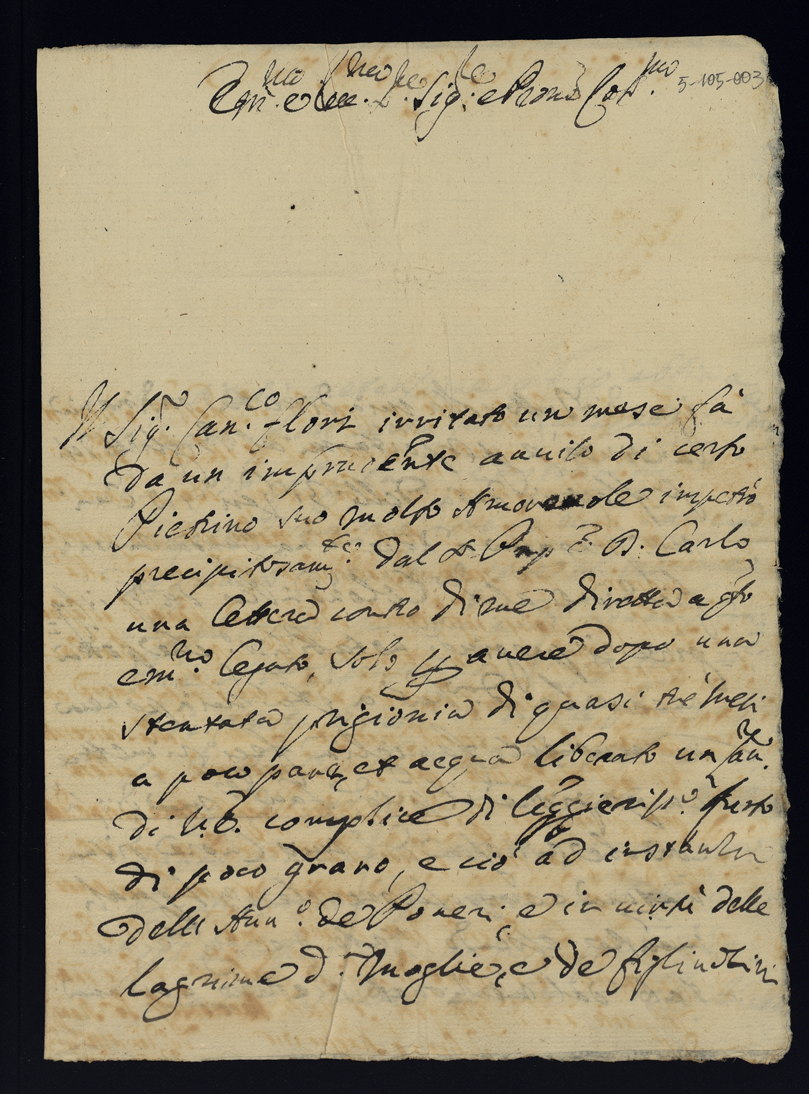 Em.mo e R.mo Sig.re e Pron Col.mo
5-105-003
Il Sig.r Can.co Flori irritato un mese fà
da un imprudente auuiso di certo
Pietrino suo molto Amoreuole impetrò
precipitosam.te dal D. Carlo
una lettera contro di me diretta a q.sto
em.mo Legato, solo p. auere dopo una
stentata prigionia di quasi trè mesi
a poco pane, et acqua liberato un
di complice di leggieriss.o furto
di poco grano, e ciò ad instantia
dell Auu.o de Poueri, e in uirtù delle
lagrime d. Moglie, e de figliuolini